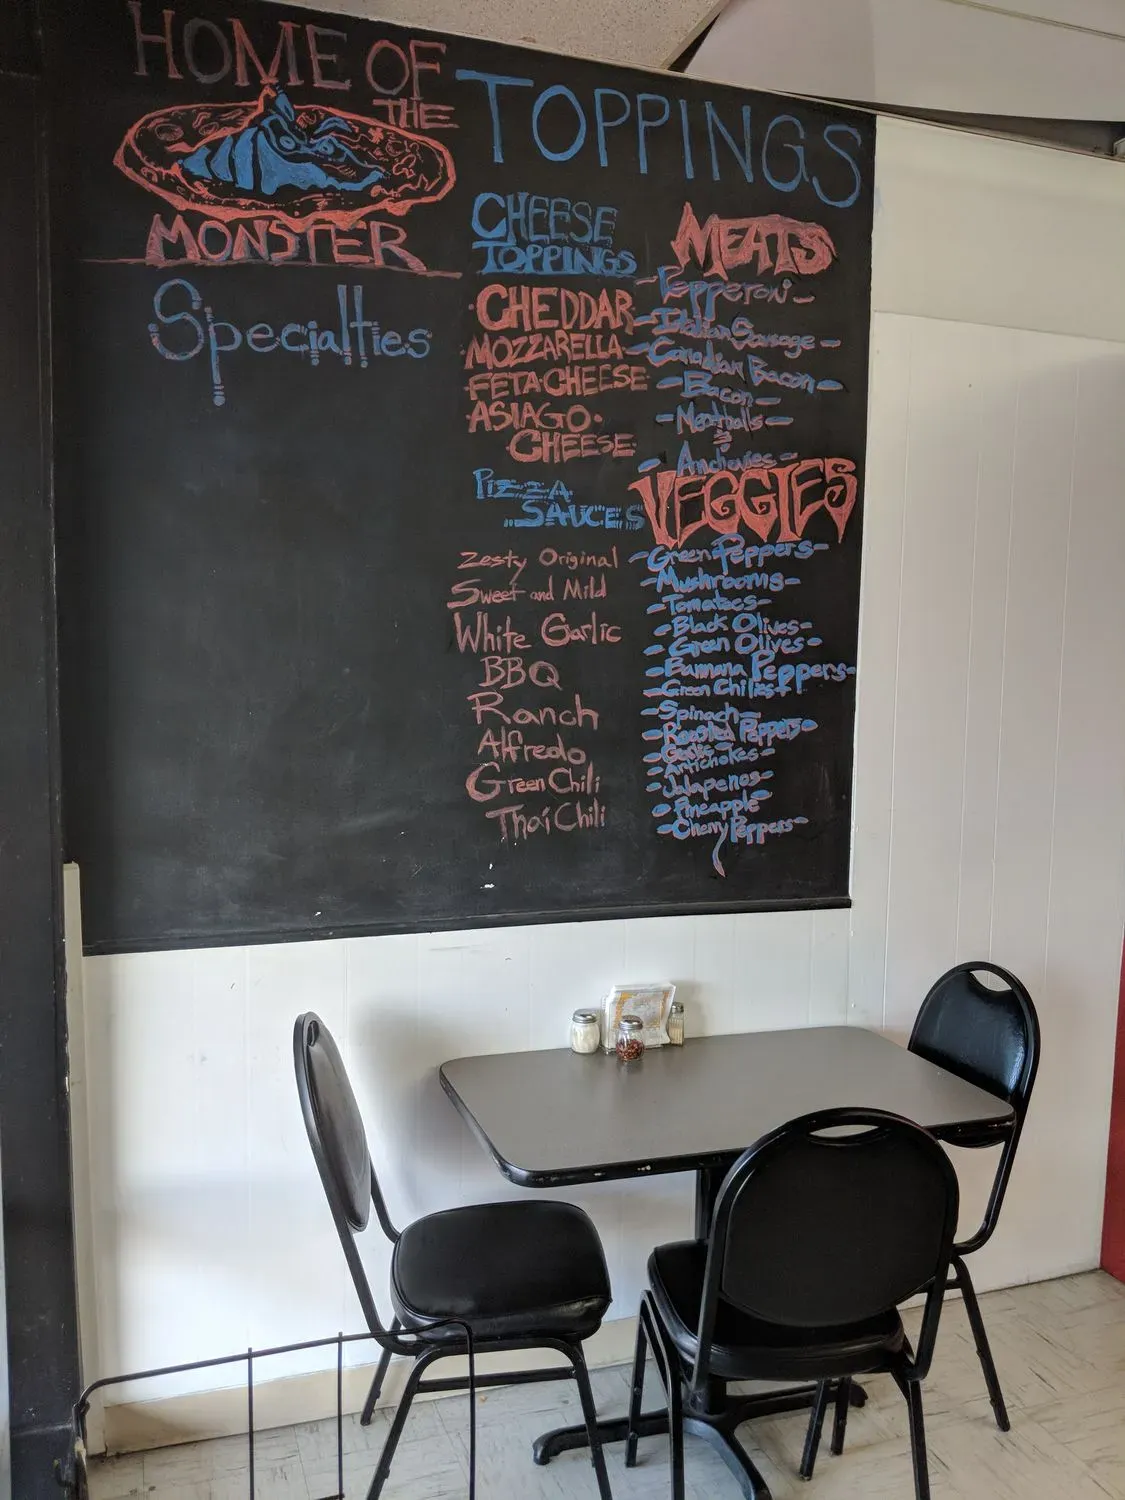 HOME OF
THE
MONSTER
Specialties
TOPPINGS
CHEESE
TOPPINGS
CHEDDAR
MOZZARELLA
FETA CHEESE
ASIAGO
CHEESE
PIZZA
SAUCES
Zesty Original
Sweet and Mild
White Garlic
BBQ
Ranch
Alfredo
Green Chili
Thai Chili
MEATS
Pepperoni
Italian Sausage
Canadian Bacon
Bacon
Meatballs
&
Anchovies
VEGGIES
Green Peppers
Mushrooms
Tomatoes
Black Olives
Green Olives
Bannana Peppers
Green Chilies
Spinach
Roasted Peppers
Garlic
Artichokes
Jalapenos
Pineapple
Cherry Peppers